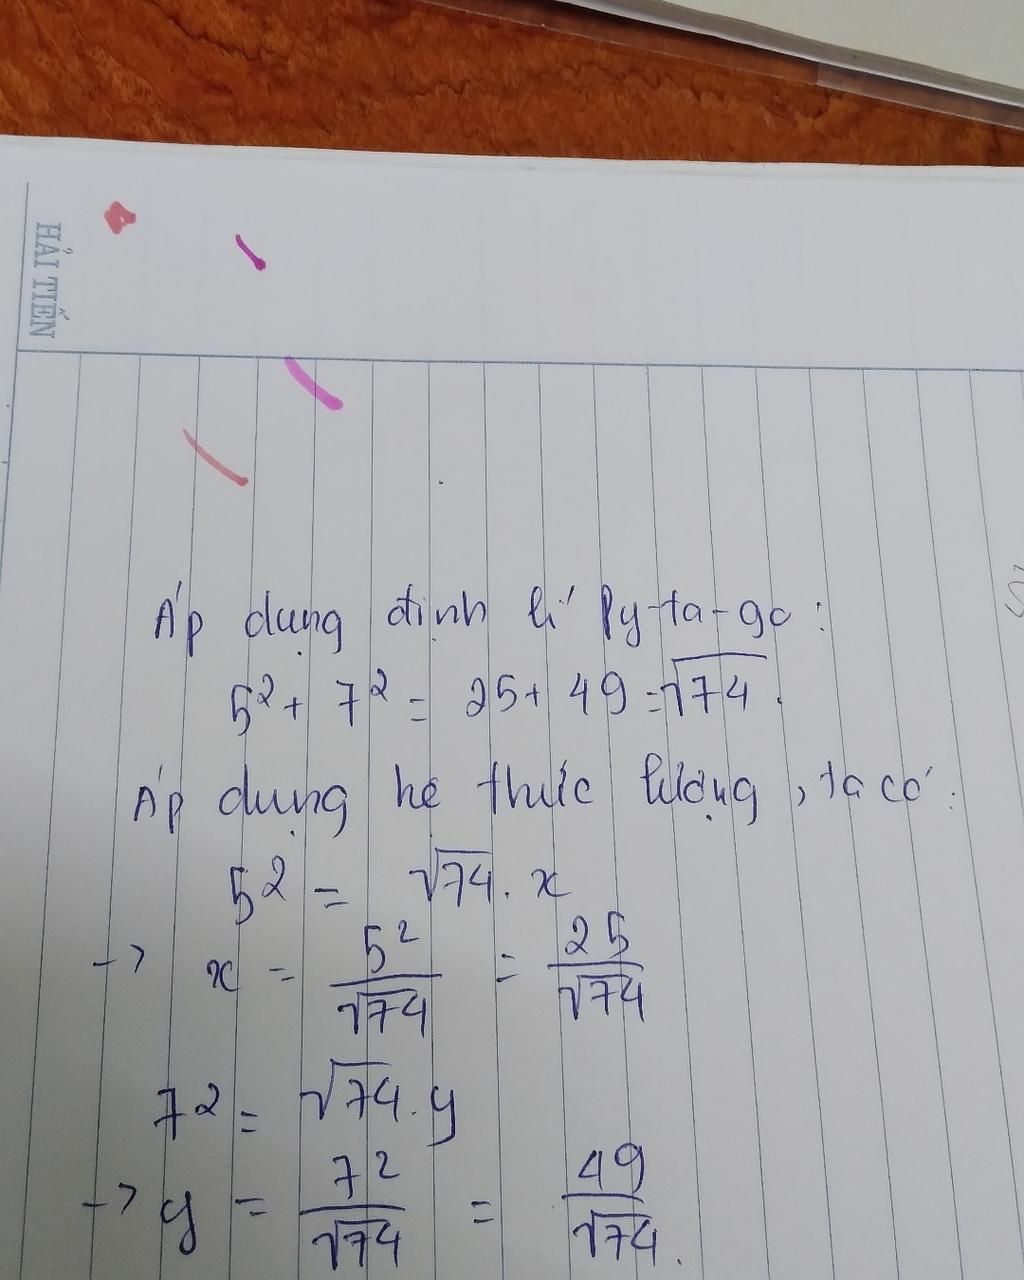 HẢI TIẾN
Áp dụng định lí Py-ta-go:
5² + 7² = 25 + 49 = √74.
Áp dụng hệ thức lượng, ta có:
5² = √74 . x
→ x = 5²/√74 = 25/√74
7² = √74 . y
→ y = 7²/√74 = 49/√74.